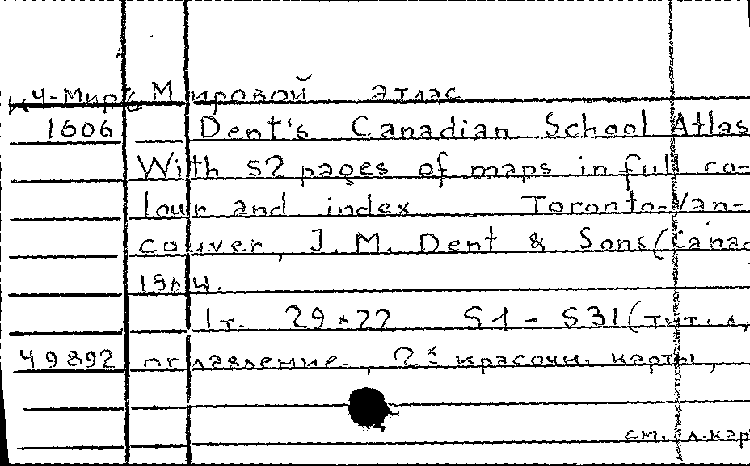 К4-Мир Мировой атлас
1606 Dent's Canadian School Atlas
With 52 pages of maps in full co-
lour and index Toronto-Van-
couver, J. M. Dent & Sons (Canad
1964.
1т. 29×22 S1 - S31 (тит. л,
49892 оглавление, красочн. карты,
см. д.кар